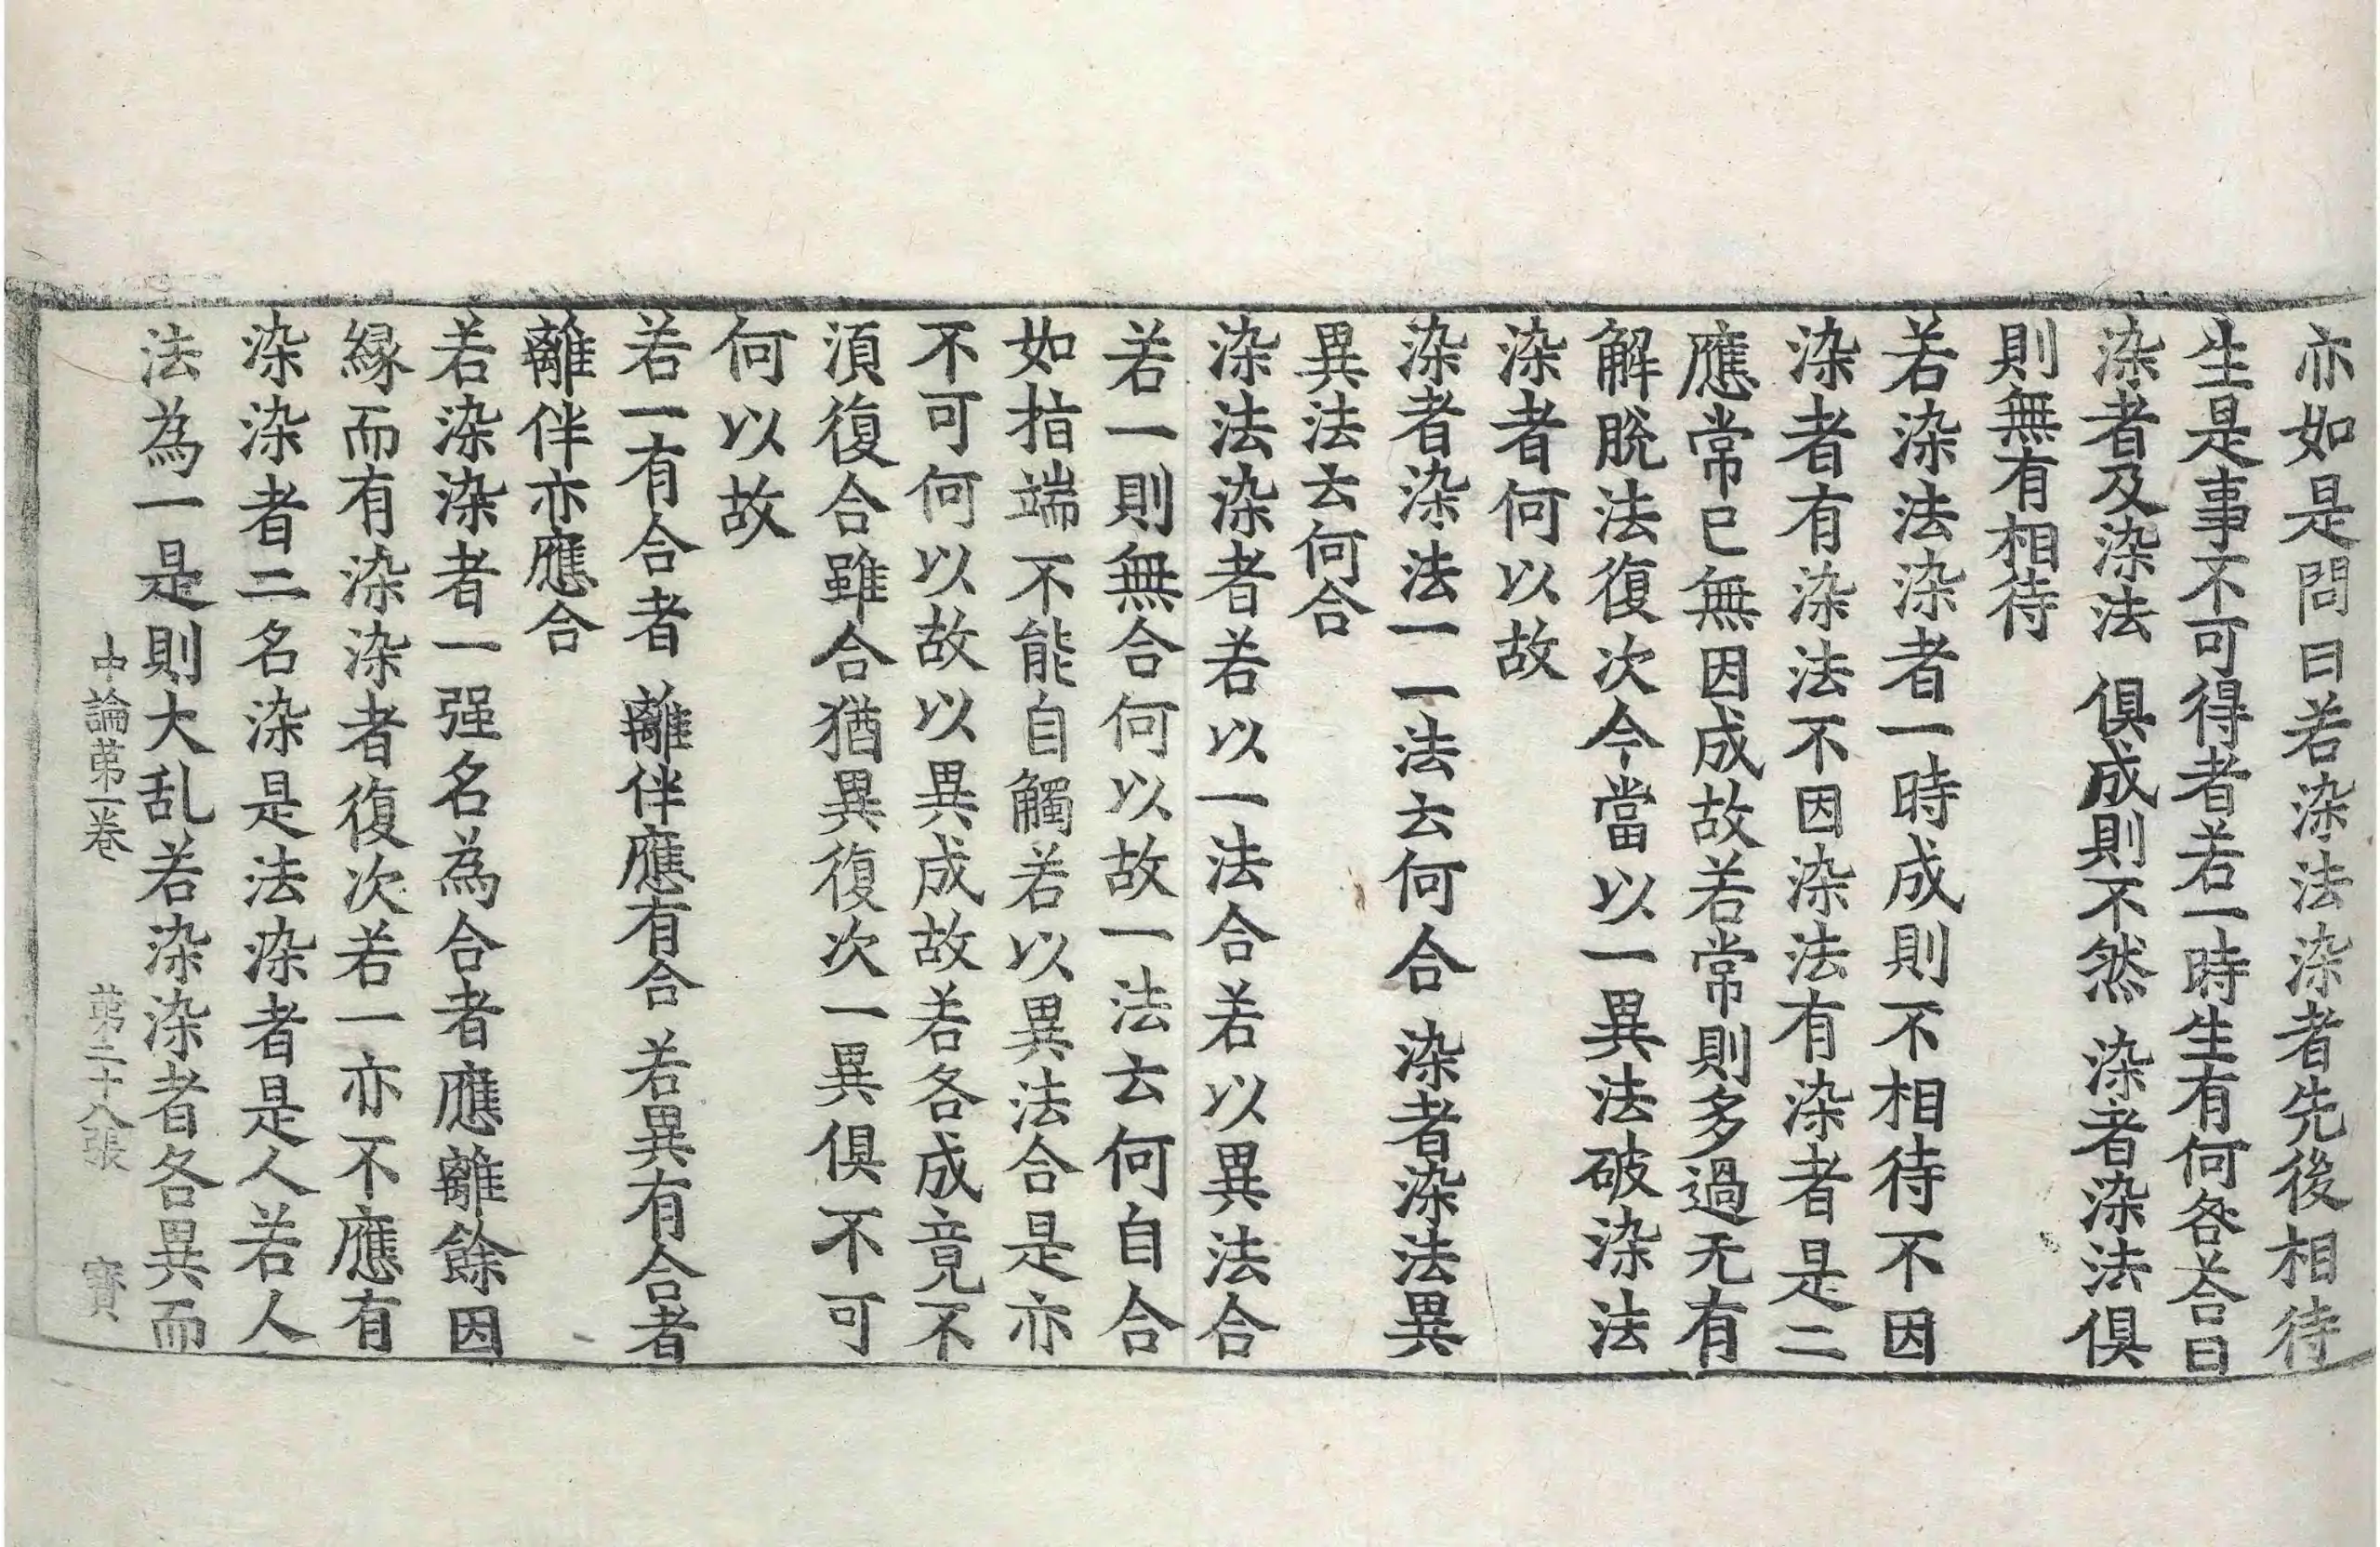 亦如是問曰若染法染者先後相待
生是事不可得者若一時生有何咎荅曰
染者及染法 俱成則不然 染者染法俱
則無有相待
若染法染者一時成則不相待不因
染者有染法不因染法有染者是二
應常已無因成故若常則多過无有
解脫法復次今當以一異法破染法
染者何以故
染者染法一 一法云何合 染者染法異
異法云何合
染法染者若以一法合若以異法合
若一則無合何以故一法云何自合
如指端不能自觸若以異法合是亦
不可何以故以異成故若各成竟不
湏復合雖合猶異復次一異俱不可
何以故
若一有合者 離伴應有合 若異有合者
離伴亦應合
若染染者一强名為合者應離餘因
縁而有染染者復次若一亦不應有
染染者二名染是法染者是人若人
法為一是則大乱若染染者各異而
中論苐一卷 苐二十八張 寳